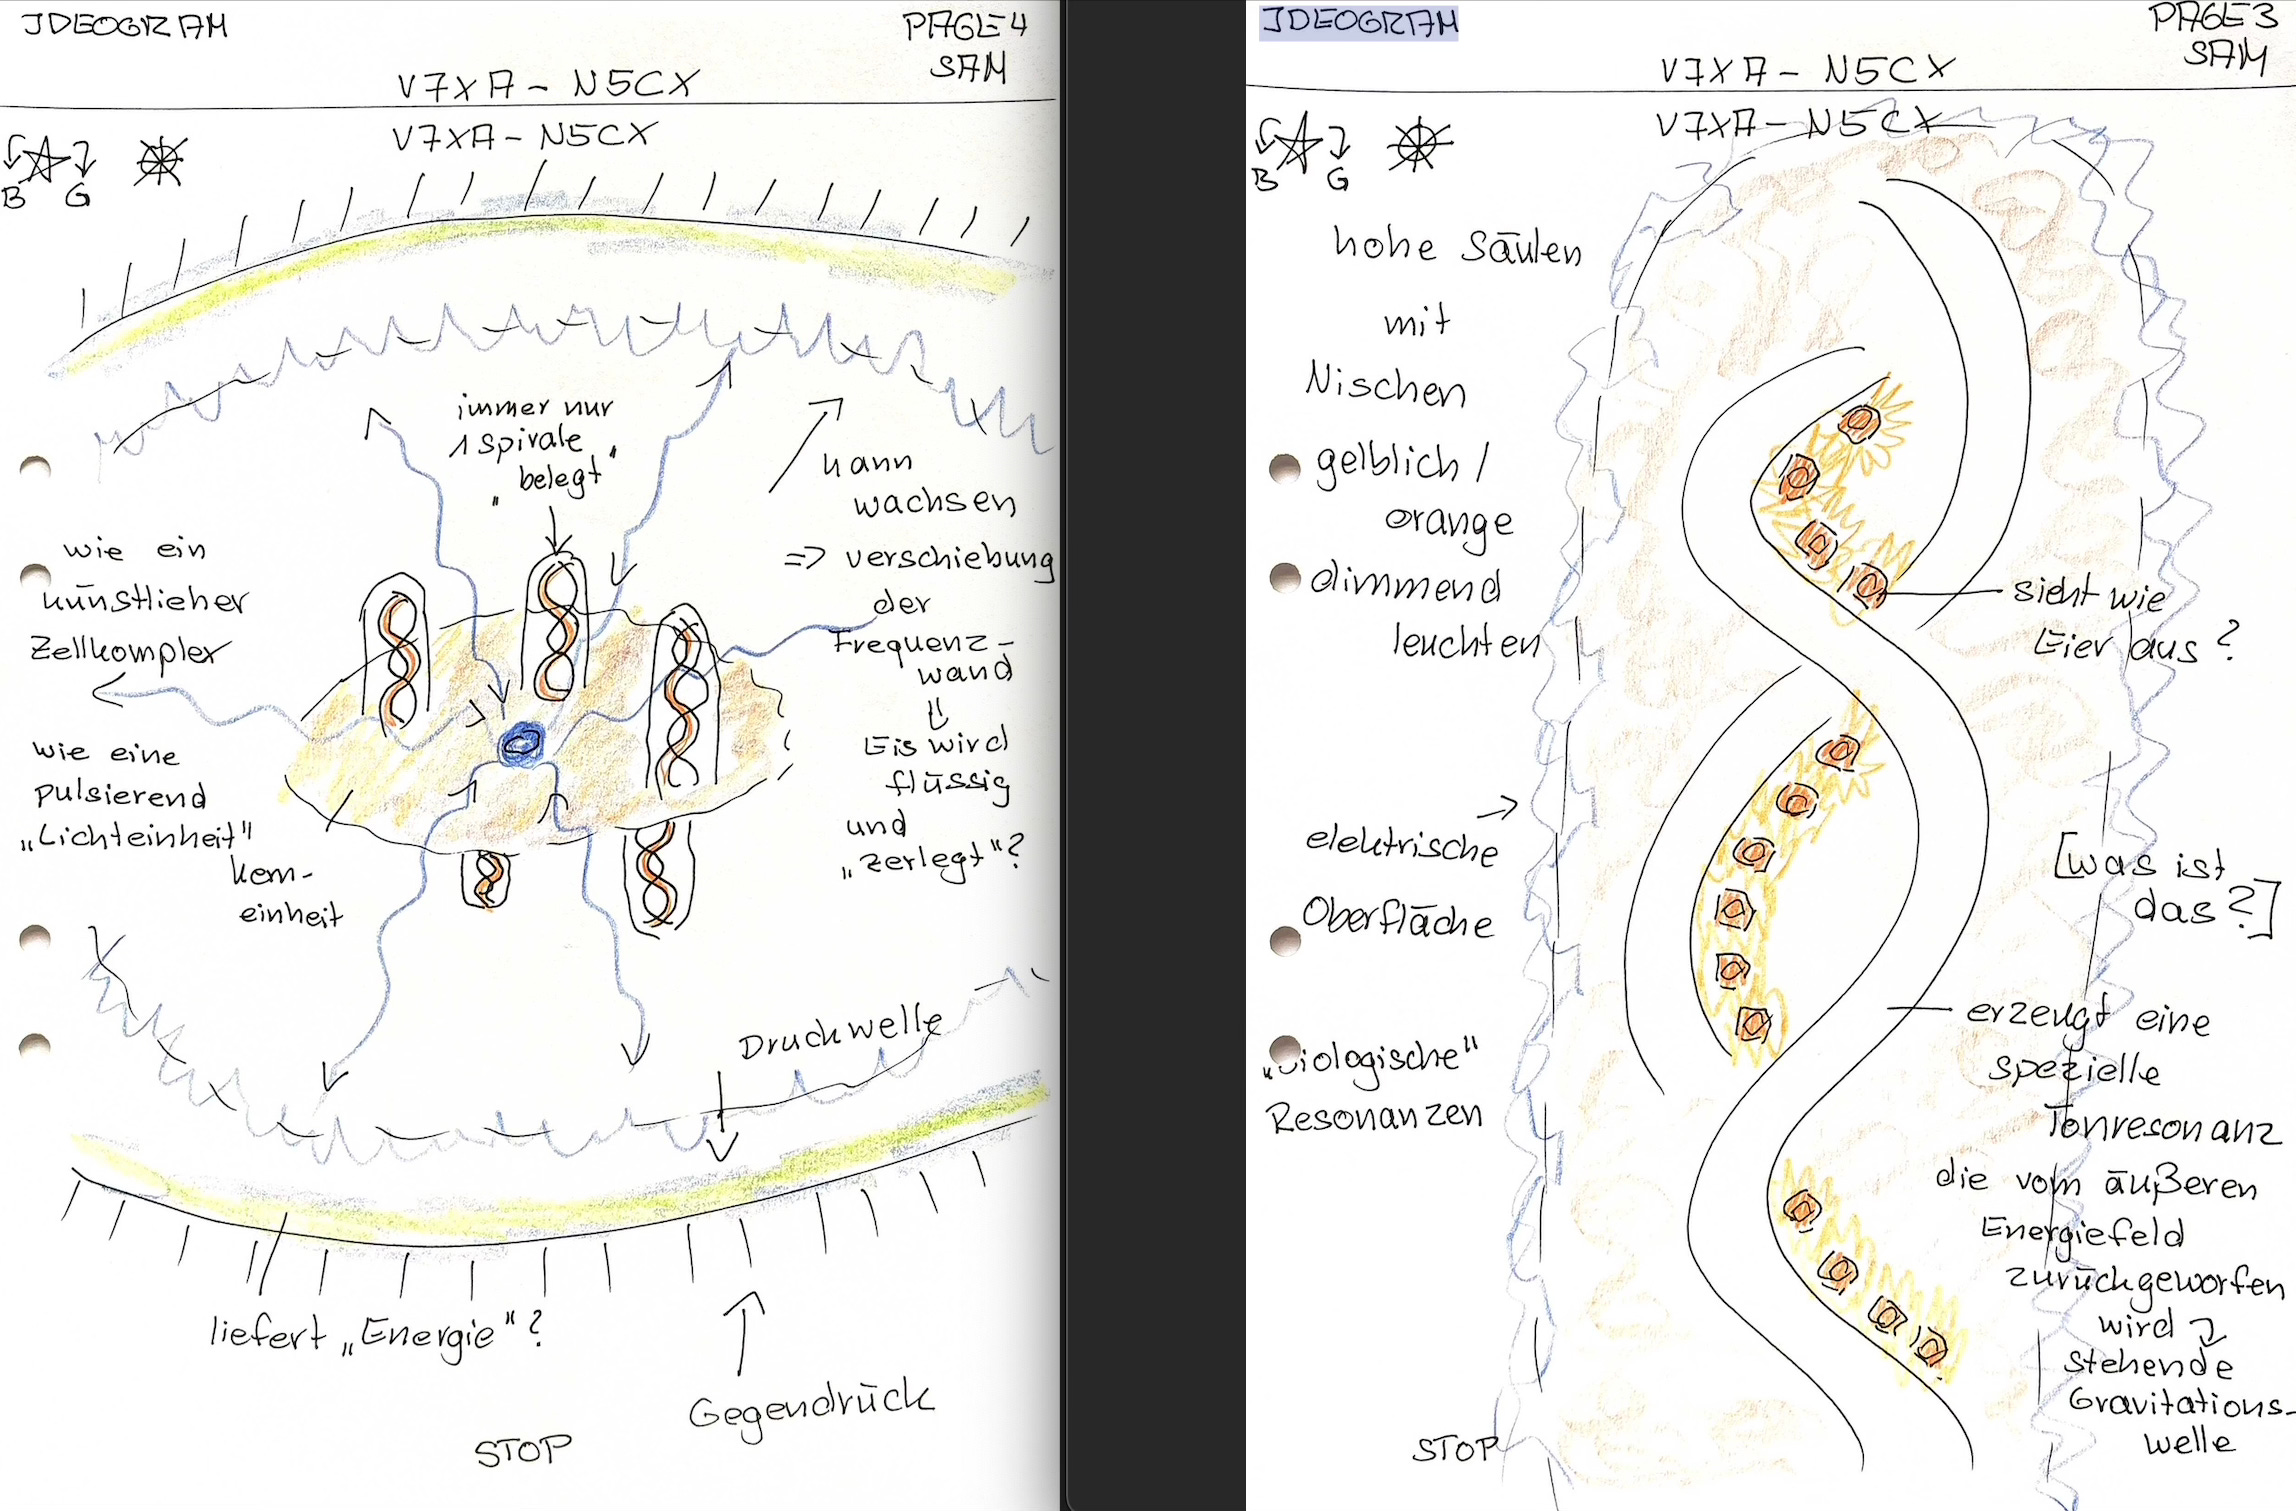 IDEOGRAM
PAGE 4
SAM
V7XA - N5CX
V7XA - N5CX
B G
immer nur
1 spirale
„belegt"
kann
wachsen
=> verschiebung
der
Frequenz-
wand
Eis wird
flüssig
und
„zerlegt"?
wie ein
künstlicher
Zellkomplex
wie eine
pulsierend
„Lichteinheit"
Kern-
einheit
Druckwelle
liefert „Energie"?
Gegendrück
STOP
IDEOGRAM
PAGE 3
SAM
V7XA - N5CX
V7XA - N5CX
B G
hohe Säulen
mit
Nischen
gelblich /
orange
dimmend
leuchten
sieht wie
Eier aus?
elektrische
Oberfläche
[was ist
das?]
„biologische"
Resonanzen
erzeugt eine
spezielle
Tonresonanz
die vom äußeren
Energiefeld
zurückgeworfen
wird
stehende
Gravitations-
welle
STOP